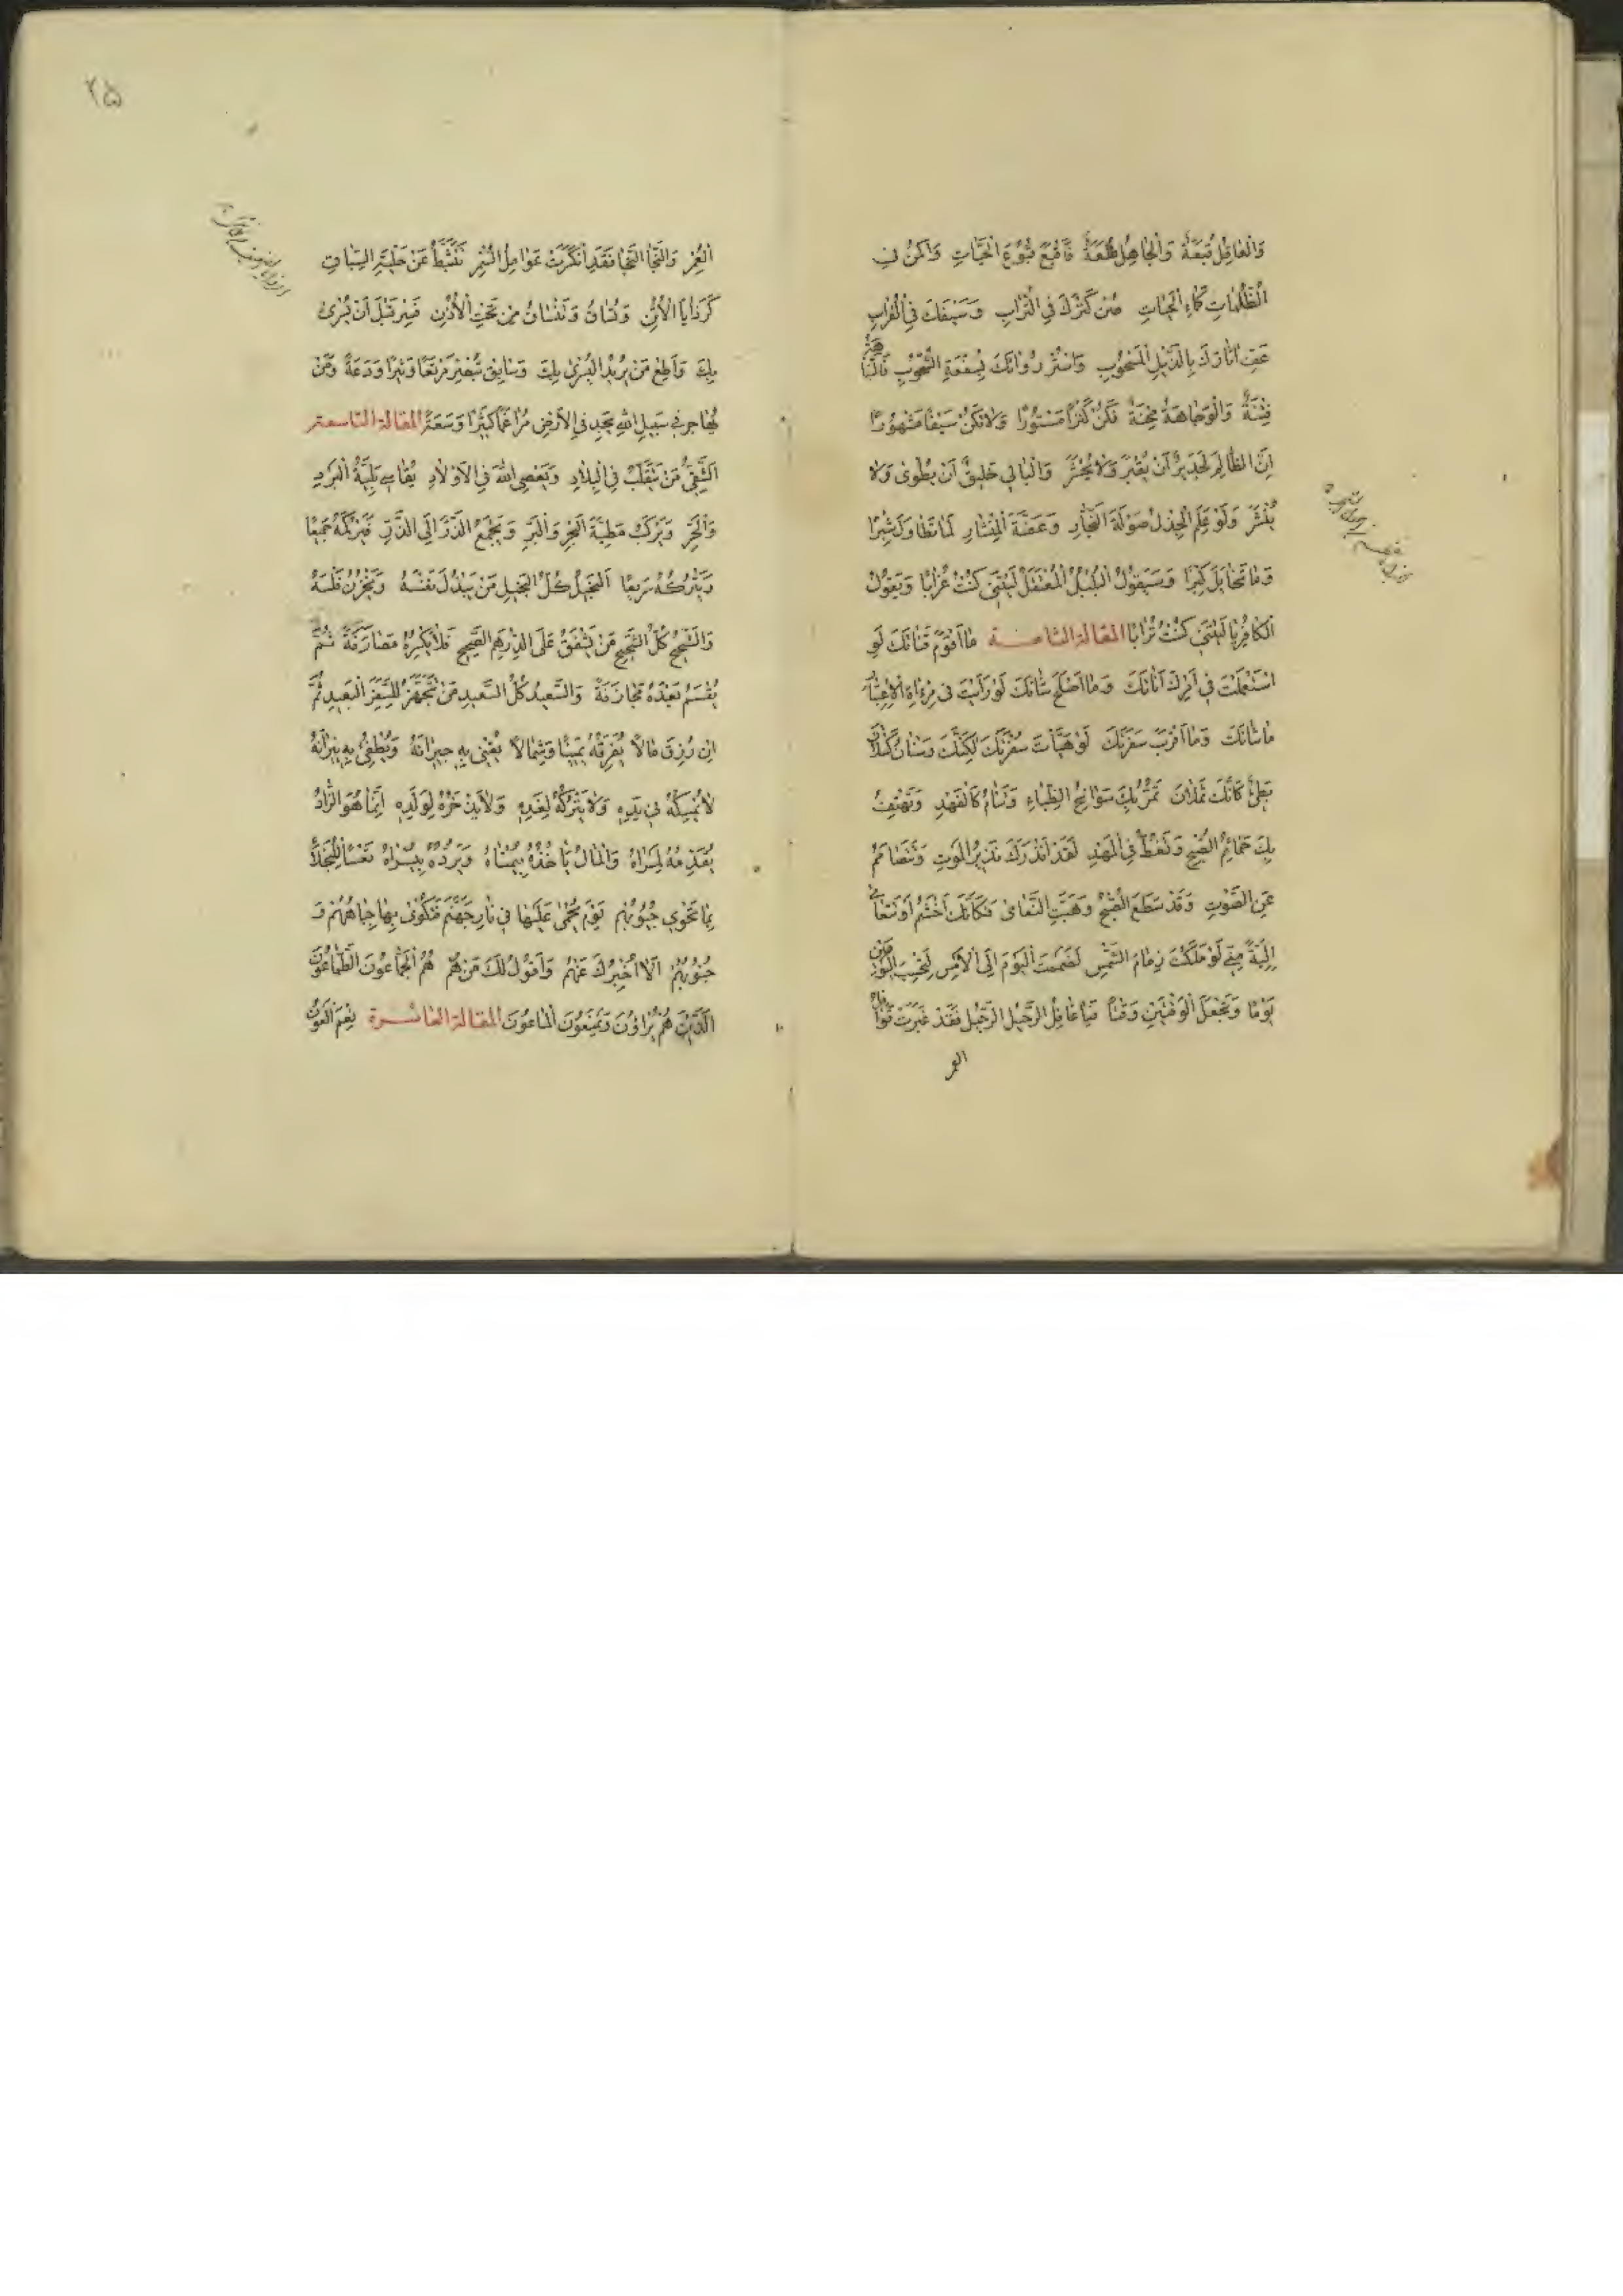 وَالْعَاقِلُ قُبَعَةٌ وَالْجَاهِلُ طُلَعَةٌ فَاقْبَعْ قُبُوعَ الْحَيَّاتِ وَاكْمُنْ فِي
الظُّلُمَاتِ كَمَاءِ الْحَيَاتِ صُنْ كَنْزَكَ فِي التُّرَابِ وَسَيْفَكَ فِي الْقِرَابِ
عَفِّ اٰثَارَكَ بِالذَّيْلِ الْمَسْحُوبِ وَاسْتُرْ رُوَاءَكَ بِسُفْعَةِ الشُّحُوبِ فَالنَّبَاهَةُ
فِتْنَةٌ وَالْوَجَاهَةُ مِحْنَةٌ فَكُنْ كَنْزًا مَسْتُورًا وَلَا تَكُنْ سَيْفًا مَشْهُورًا
اِنَّ الظَّالِمَ لَجَدِيرٌ اَنْ يُقْبَرَ وَلَا يُحْشَرَ وَالْبَالِي خَلِيقٌ اَنْ يُطْوٰى وَلَا
يُنْشَرَ وَلَوْ عَلِمَ الْجِذْلُ صَوْلَةَ النَّجَّارِ وَعَضَّةَ الْمِنْشَارِ لَمَا تَطَاوَلَ شِبْرًا
وَمَا تَخَايَلَ كِبْرًا وَسَيَقُولُ الْبُلْبُلُ الْمُعْتَقَلُ لَيْتَنِي كُنْتُ غُرَابًا وَيَقُولُ
الْكَافِرُ يَا لَيْتَنِي كُنْتُ تُرَابًا المقالة الثامنة مَا اَقْوَمَ قَنَاتَكَ لَوِ
اسْتَعْمَلْتَ فِي اَمْرِكَ اَنَاتَكَ وَمَا اَصْلَحَ شَانَكَ لَوْ رَاَيْتَ فِي مِرْاٰةِ الْاِعْتِبَارِ
مَا شَانَكَ وَمَا اَقْرَبَ سَفَرَتَكَ لَوْ هَيَّاْتَ سُفْرَتَكَ لٰكِنَّكَ وَسْنَانُ كَسْلَانُ
بَطِيٌ كَاَنَّكَ ثَمْلَانُ تَمُرُّ بِكَ سَوَانِحُ الظِّبَاءِ وَتَنَامُ كَالْفَهْدِ وَتَهْتِفُ
بِكَ حَمَائِمُ الصُّبْحِ وَتَغُطُّ فِي الْمَهْدِ لَقَدْ اَنْذَرَكَ نَذِيرُ الْمَوْتِ وَتَتَصَامَمُ
عَنِ الصَّوْتِ وَقَدْ سَطَعَ الصُّبْحُ وَهَبَّتِ النُّعَامٰى فَكَاَنَّكَ اَخْشَمُ اَوْ تَتَعَامٰى
اِلْيَةً مِنِّي لَوْ مَلَكْتَ زِمَامَ الشَّمْسِ لَضَمَمْتَ الْيَوْمَ اِلَى الْاَمْسِ لِتَحْسِبَ الْيَوْمَيْنِ
يَوْمًا وَتَجْعَلَ الْوَقْتَيْنِ وَقْتًا فَيَا غَافِلُ الرَّحِيلَ الرَّحِيلَ فَقَدْ عَبَرَتْ قَوَافِلُ
العمر
٢٥
الْعُمْرِ وَالنَّجَا النَّجَا فَقَدِ انْكَرَتْ عَوَامِلُ السَّيْرِ تَتَثَبَّطُ عَنْ حَلْبَةِ السِّبَاقِ
كَرَذَايَا الْاُتُنِ وَتُسَاقُ مِنْ تَحْتِ الْاُذُنِ فَسِرْ قَبْلَ اَنْ يُسْرٰى
بِكَ وَاَطِعْ مَنْ يُرِيدُ الْيُسْرٰى بِكَ وَسَابِقْ وَدَعَةً وَمَنْ
يُهَاجِرْ فِي سَبِيلِ اللّٰهِ يَجِدْ فِي الْاَرْضِ مُرَاغَمًا كَثِيرًا وَسَعَةً المقالة التاسعة
الشَّقِيُّ مَنْ يَتَقَلَّبُ فِي الْبِلَادِ وَيَعْصِي اللّٰهَ فِي الْاَوْلَادِ يُقَاسِي بَلِيَّةَ الْبَرْدِ
وَالْحَرِّ وَيَرْكَبُ مَطِيَّةَ الْبَحْرِ وَالْبَرِّ وَيَجْمَعُ الذَّرَّ اِلَى الذَّرِّ فَيَرْكُمُهُ جَمِيعًا
وَيَتْرُكُهُ سَرِيعًا اَلْبَخِيلُ كُلُّ الْبَخِيلِ مَنْ يَبْذُلُ نَفْسَهُ وَيَخْزُنُ فَلْسَهُ
وَالشَّحِيحُ كُلُّ الشَّحِيحِ مَنْ يُشْفِقُ عَلَى الدِّرْهَمِ الصَّحِيحِ فَلَا يَكْسِرُهُ مُصَارَفَةً ثُمَّ
يُقْسَمُ بَعْدَهُ مُجَازَفَةً وَالسَّعِيدُ كُلُّ السَّعِيدِ مَنْ تَجَهَّزَ لِلسَّفَرِ الْبَعِيدِ ثُمَّ
اِنْ رُزِقَ مَالًا يُفَرِّقُهُ يَمِينًا وَشِمَالًا يُغْنِي بِهِ جِيرَانَهُ وَيُطْفِئُ بِهِ نِيرَانَهُ
لَا يُمْسِكُهُ فِي يَدِهِ وَلَا يَتْرُكُهُ لِغَدِهِ وَلَا يَدَّخِرُهُ لِوَلَدِهِ اِنَّمَا هُوَ الزَّادُ
يُقَدِّمُهُ لِمَسْرَاهُ وَالْمَالُ يَاْخُذُهُ بِيُمْنَاهُ وَيَرُدُّهُ بِيُسْرَاهُ تَعْسًا لِلْبُخَلَاءِ
بِمَا تَحْوِي جُيُوبُهُمْ يَوْمَ يُحْمٰى عَلَيْهَا فِي نَارِ جَهَنَّمَ فَتُكْوٰى بِهَا جِبَاهُهُمْ وَ
جُنُوبُهُمْ اَلَا اُخْبِرُكَ عَنْهُمْ وَاَقُولُ لَكَ مَنْ هُمْ هُمُ الْجَمَّاعُونَ الطَّمَّاعُونَ
الَّذِينَ هُمْ يُرَاؤُنَ وَيَمْنَعُونَ الْمَاعُونَ المقالة العاشرة نِعْمَ الْعَوْنُ